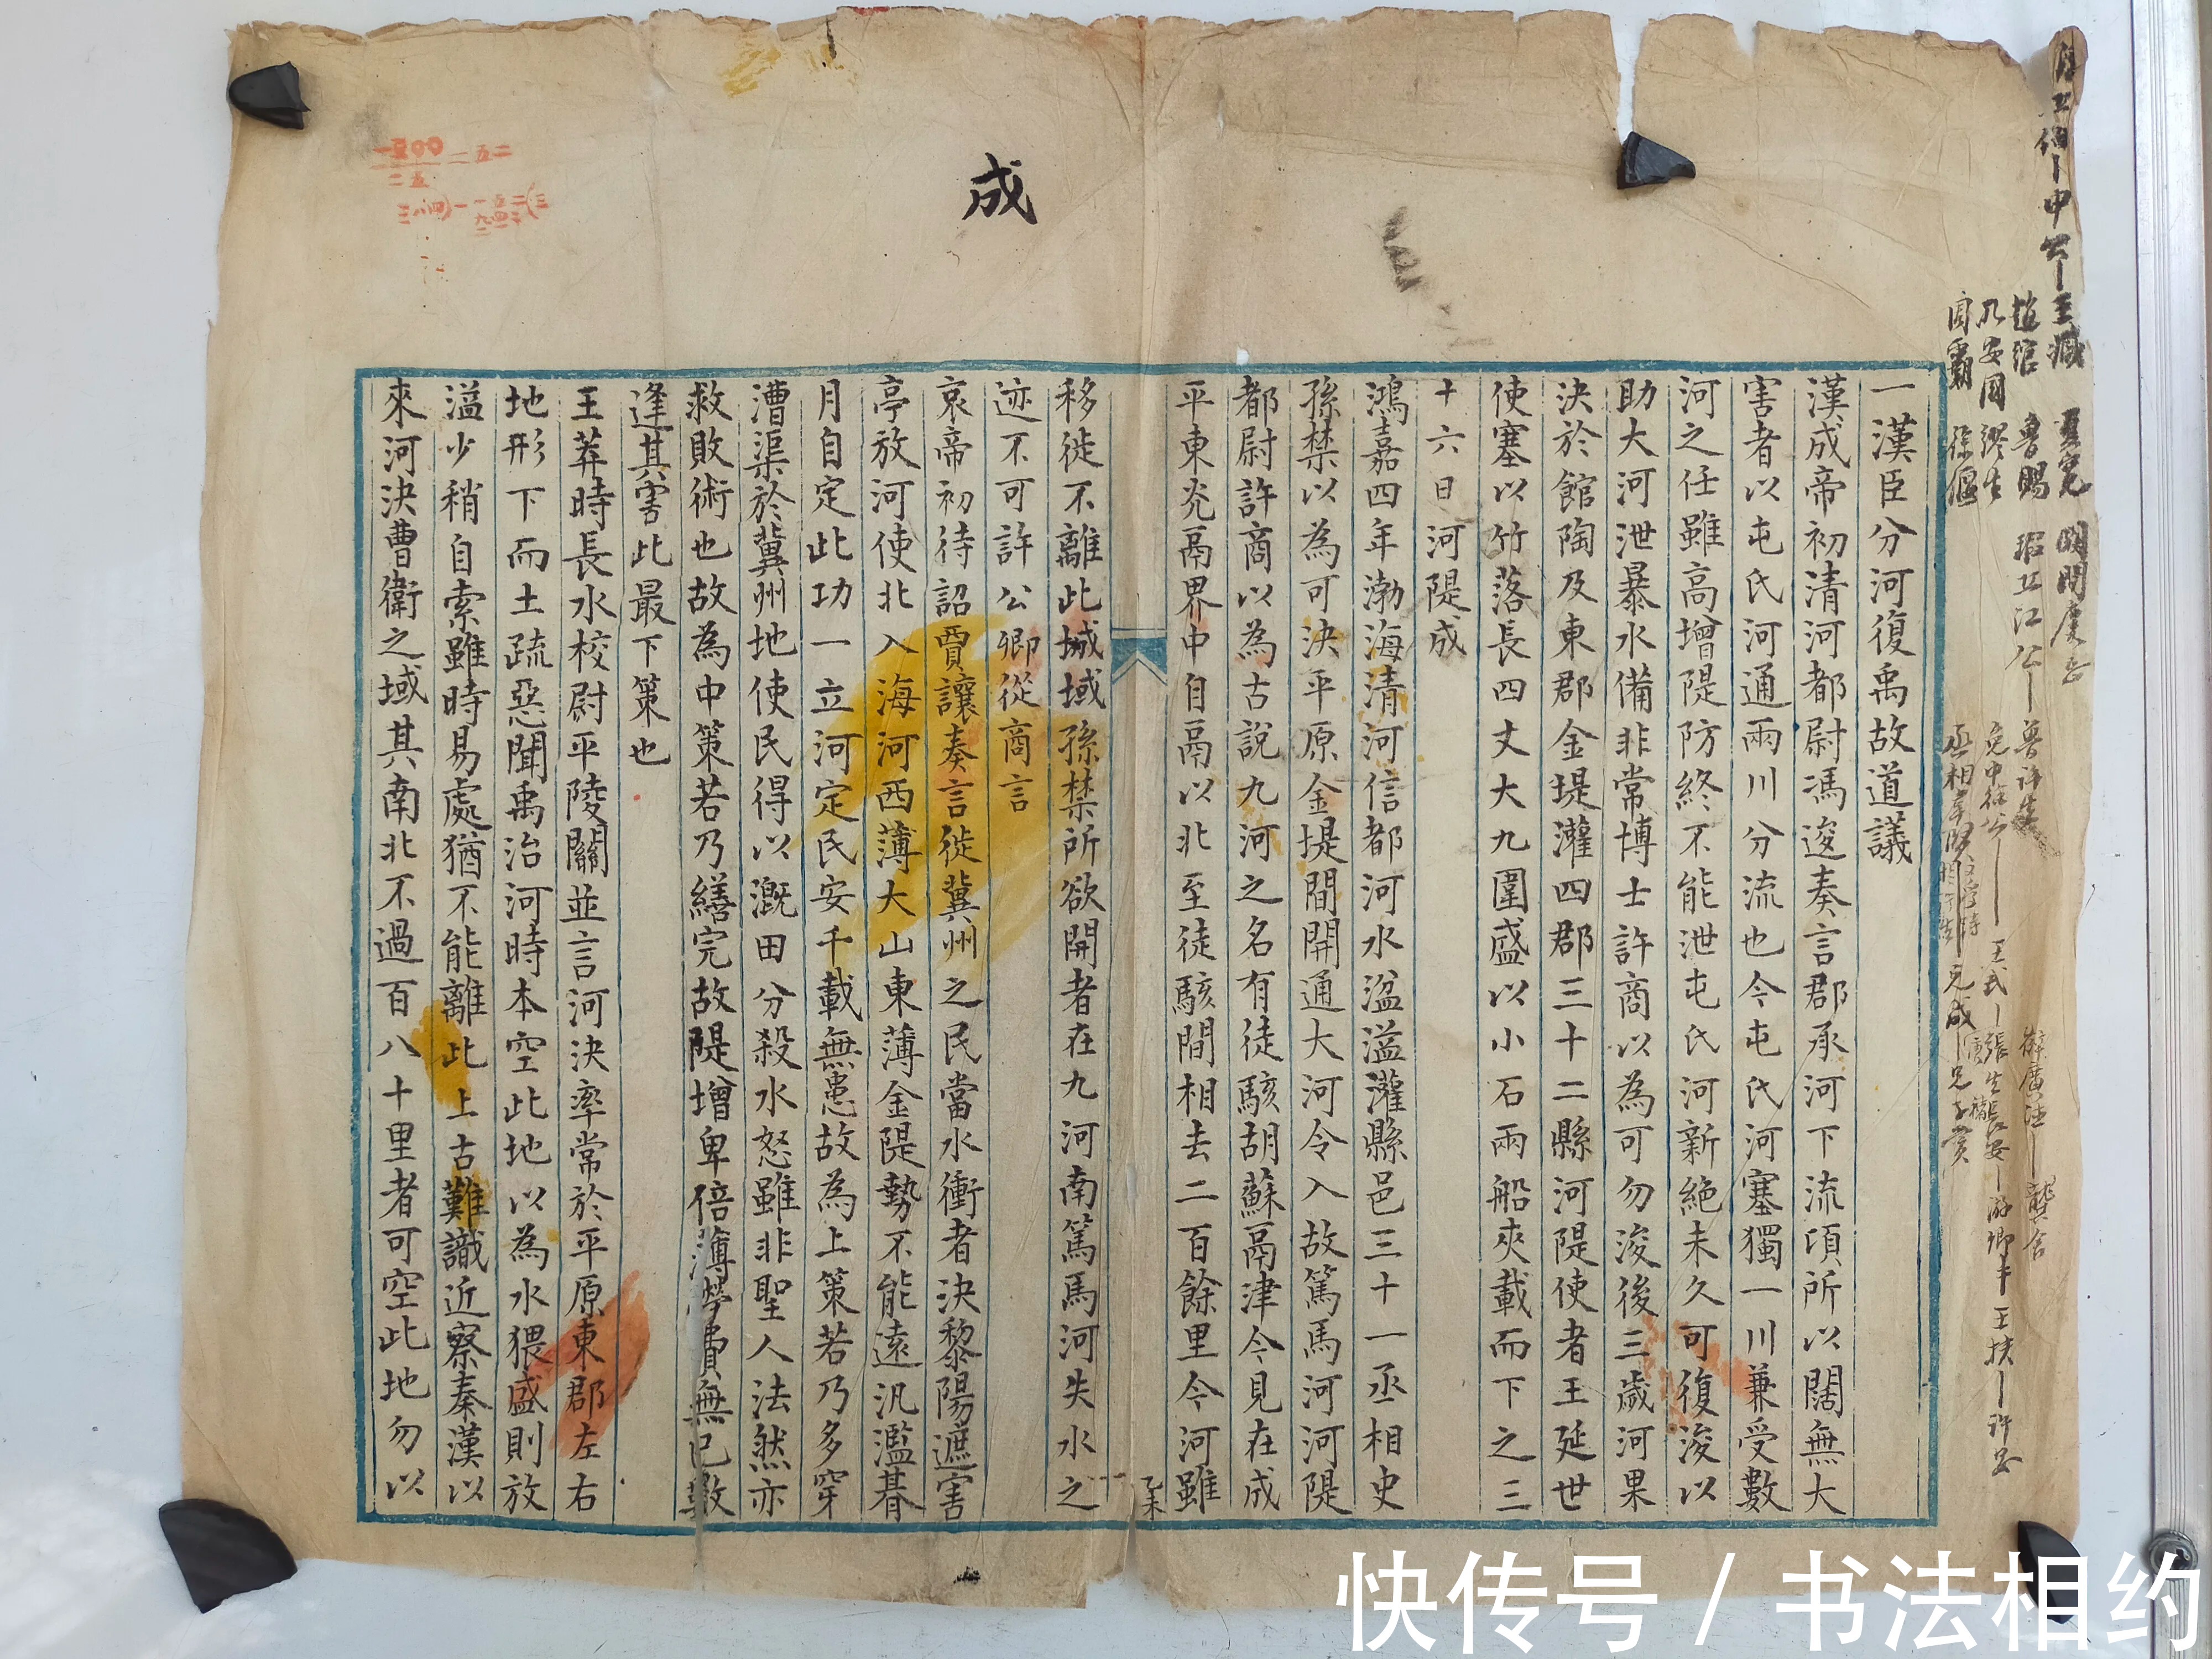 成
一漢臣分河復禹故道議
漢成帝初清河都尉馮逡奏言郡承河下流頃所以闊無大
害者以屯氏河通兩川分流也今屯氏河塞獨一川兼受數
河之任雖高增隄防終不能泄屯氏河新絶未久可復浚以
助大河泄暴水備非常博士許商以為可勿浚後三歲河果
決於館陶及東郡金堤灌四郡三十二縣河隄使者王延世
使塞以竹落長四丈大九圍盛以小石兩船夾載而下之三
十六日河隄成
鴻嘉四年渤海清河信都河水湓溢灌縣邑三十一丞相史
孫禁以為可決平原金堤間開通大河令入故篤馬河河隄
都尉許商以為古說九河之名有徒駭胡蘇鬲津今見在成
平東光鬲界中自鬲以北至徒駭間相去二百餘里今河雖
移徙不離此域域孫禁所欲開者在九河南篤馬河失水之
迹不可許公卿從商言
哀帝初待詔賈讓奏言徙冀州之民當水衝者決黎陽遮害
亭放河使北入海河西薄大山東薄金隄勢不能遠汎濫朞
月自定此功一立河定民安千載無患故為上策若乃多穿
漕渠於冀州地使民得以溉田分殺水怒雖非聖人法然亦
救敗術也故為中策若乃繕完故隄增卑倍薄勞費無已數
逢其害此最下策也
王莽時長水校尉平陵關並言河決率常於平原東郡左右
地形下而土疏惡聞禹治河時本空此地以為水猥盛則放
溢少稍自索雖時易處猶不能離此上古難識近察秦漢以
來河決曹衛之域其南北不過百八十里者可空此地勿以
快传号 / 书法相约